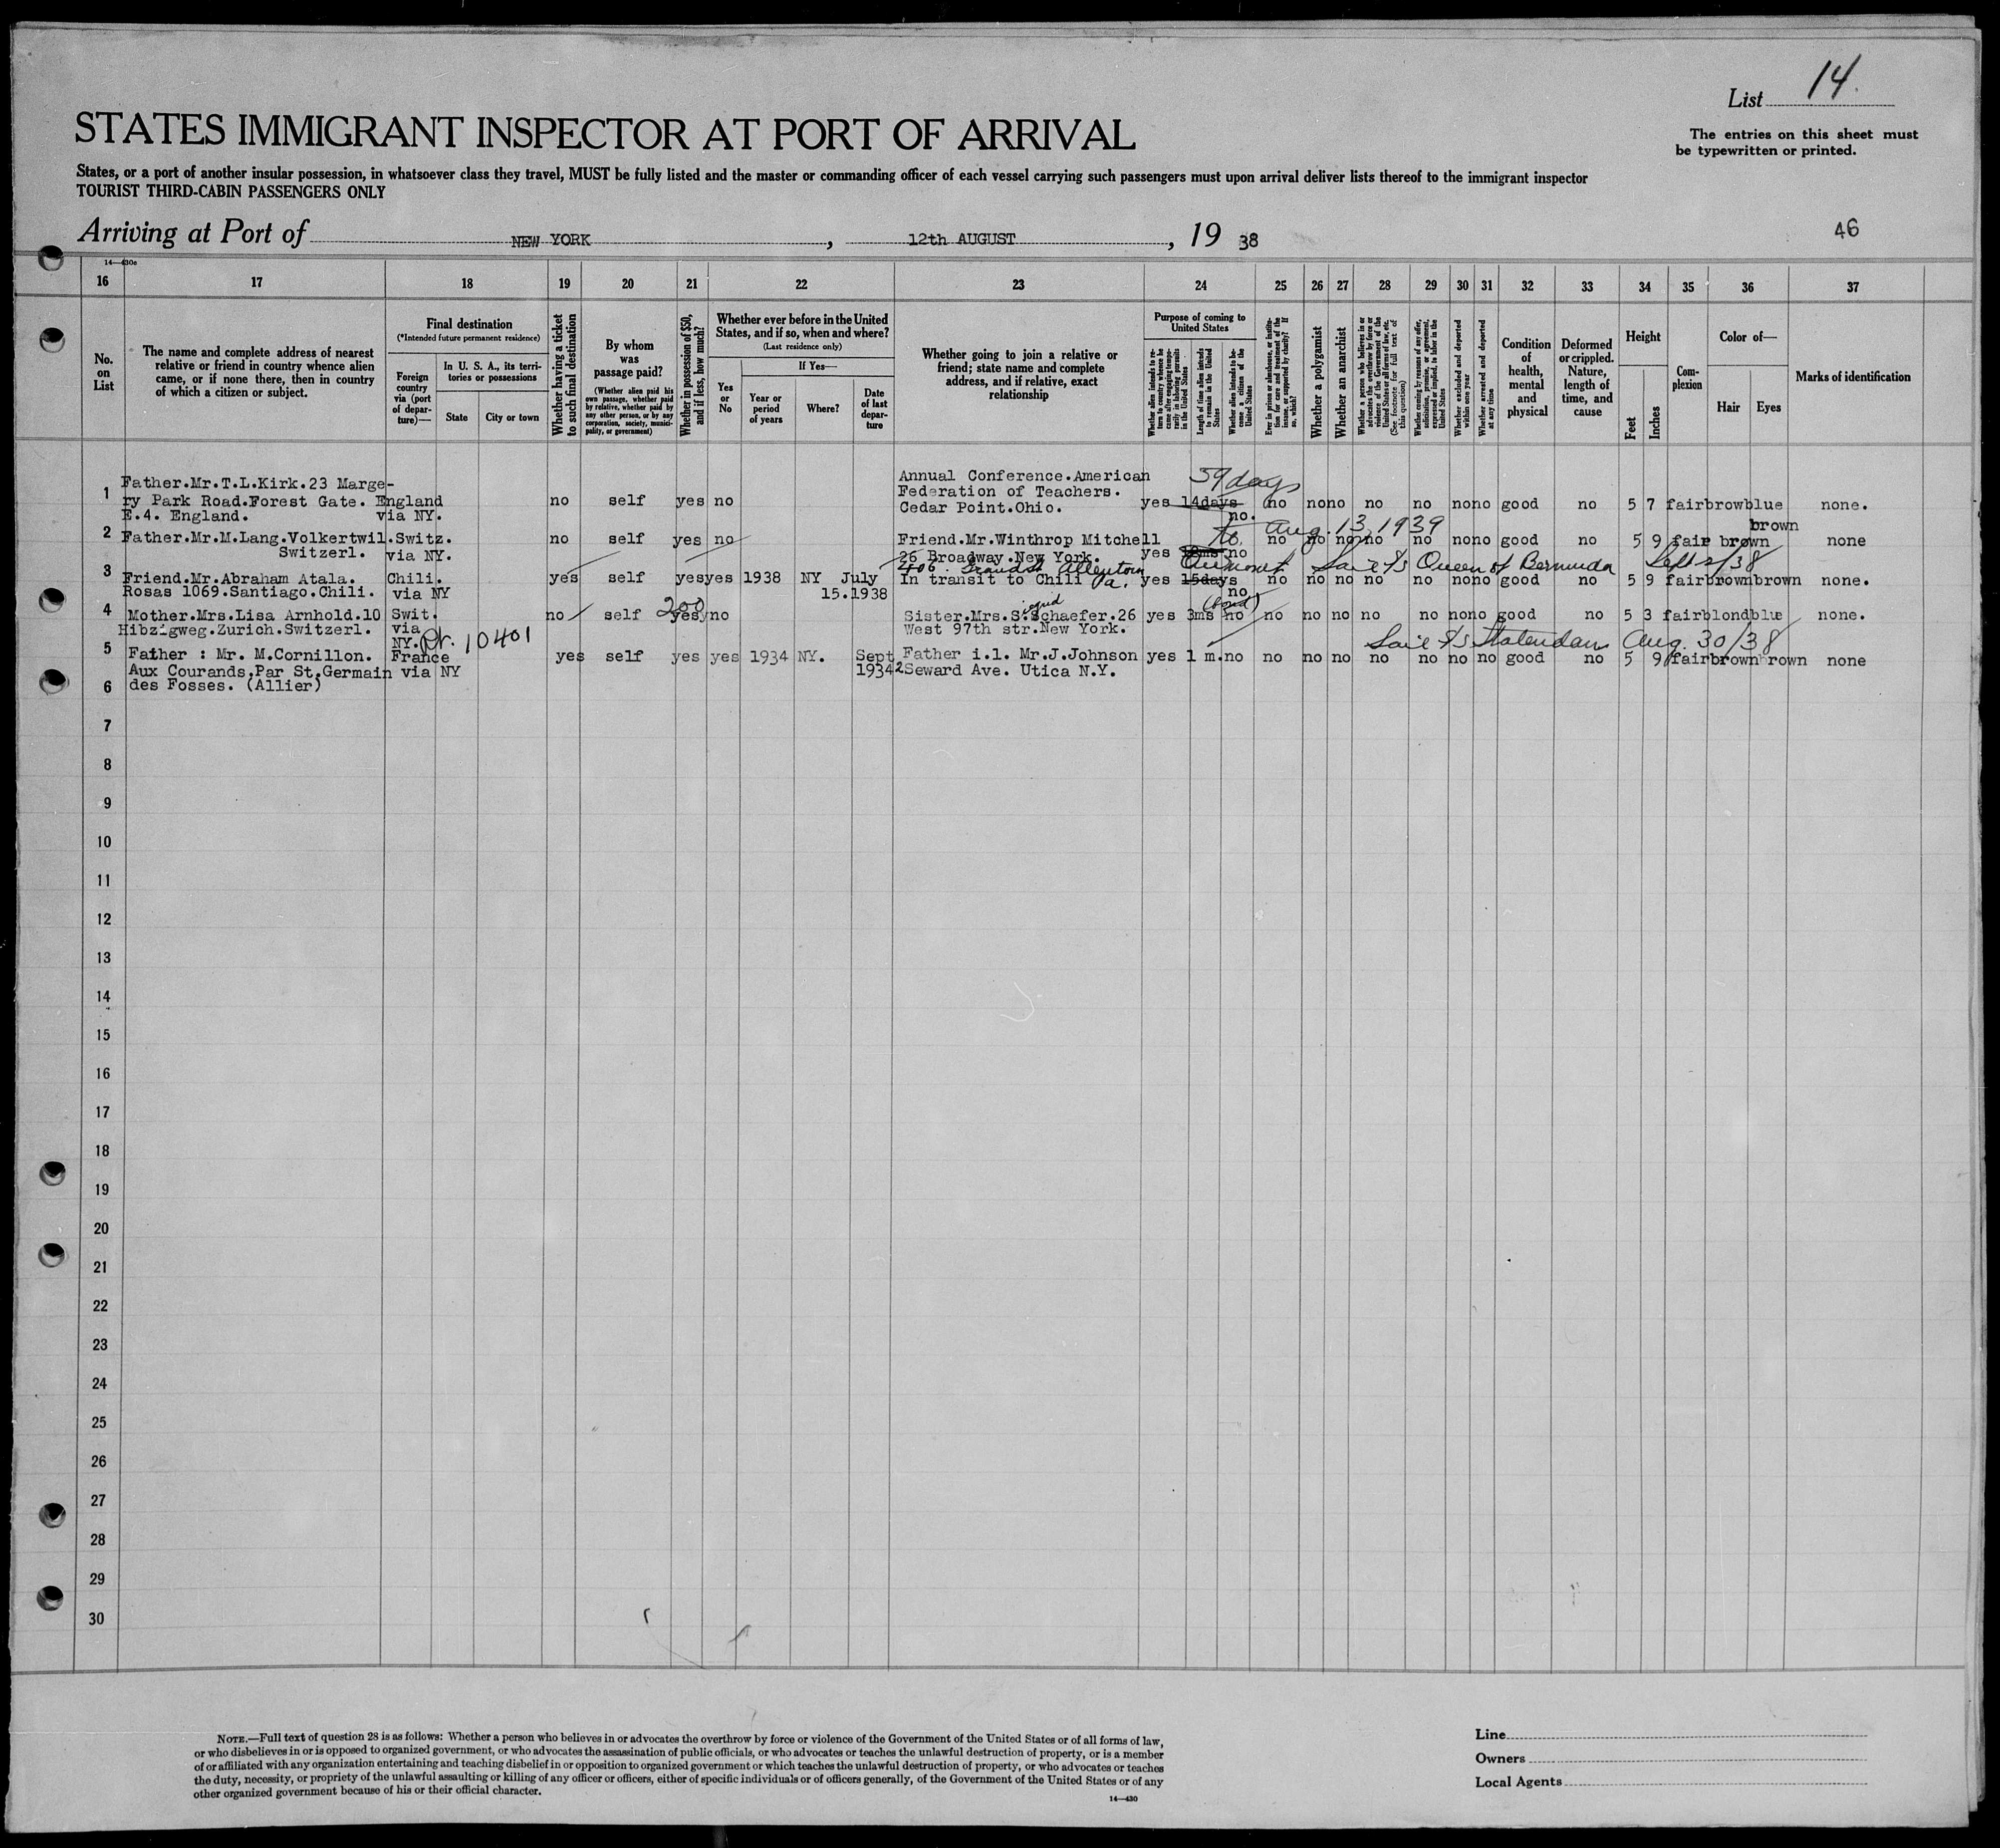 List 14.
STATES IMMIGRANT INSPECTOR AT PORT OF ARRIVAL
The entries on this sheet must
be typewritten or printed.
States, or a port of another insular possession, in whatsoever class they travel, MUST be fully listed and the master or commanding officer of each vessel carrying such passengers must upon arrival deliver lists thereof to the immigrant inspector
TOURIST THIRD-CABIN PASSENGERS ONLY
Arriving at Port of NEW YORK, 12th AUGUST, 19 38
46
14—430e
16 17 18 19 20 21 22 23 24 25 26 27 28 29 30 31 32 33 34 35 36 37
No. on List
The name and complete address of nearest
relative or friend in country whence alien
came, or if none there, then in country
of which a citizen or subject.
Final destination
(*Intended future permanent residence)
Foreign country via (port of departure)—
In U. S. A., its territories or possessions
State
City or town
Whether having a ticket to such final destination
By whom was passage paid?
(Whether alien paid his own passage, whether paid by relative, whether paid by any other person, or by any corporation, society, municipality, or government)
Whether in possession of $50, and if less, how much?
Whether ever before in the United States, and if so, when and where?
(Last residence only)
Yes or No
If Yes—
Year or period of years
Where?
Date of last departure
Whether going to join a relative or
friend; state name and complete
address, and if relative, exact
relationship
Purpose of coming to United States
Whether alien intends to return to country whence he came after engaging temporarily in laboring pursuits in the United States
Length of time alien intends to remain in the United States
Whether alien intends to become a citizen of the United States
Ever in prison or almshouse, or institution for care and treatment of the insane, or supported by charity? If so, which?
Whether a polygamist
Whether an anarchist
Whether a person who believes in or advocates the overthrow by force or violence of the Government of the United States or all forms of law, etc. (See footnote for full text of this question)
Whether coming by reason of any offer, solicitation, promise, or agreement, expressed or implied, to labor in the United States
Whether excluded and deported within one year
Whether arrested and deported at any time
Condition of health, mental and physical
Deformed or crippled. Nature, length of time, and cause
Height
Feet
Inches
Complexion
Color of—
Hair
Eyes
Marks of identification
1 Father.Mr.T.L.Kirk.23 Marge-
ry Park Road.Forest Gate. England
E.4. England. via NY.
no self yes no
Annual Conference.American
Federation of Teachers.
Cedar Point.Ohio.
59 days
yes 14days no. no no no no no no no good no 5 7 fair brown blue none.
2 Father.Mr.M.Lang.Volkertwil.Switz.
Switzerl. via NY.
no self yes no
Friend.Mr.Winthrop Mitchell
26 Broadway.New York.
to Aug. 13, 1939
yes no no no no no no no no good no 5 9 fair brown brown none
3 Friend.Mr.Abraham Atala. Chili.
Rosas 1069.Santiago.Chili. via NY
yes self yes yes 1938 NY July
15.1938
406 Grand St Allentown Pa.
In transit to Chili
Sail S/s Queen of Bermuda Sept 2/38
yes 15days no. no no no no no no no good no 5 9 fair brown brown none.
4 Mother.Mrs.Lisa Arnhold.10 Swit.
Hibzigweg.Zurich.Switzerl. via
NY. Pr. 10401
no self 200 yes no
Sister.Mrs.S.Schaefer.26
West 97th str.New York.
yes 3ms no (bond) no no no no no no no good no 5 3 fair blond blue none.
Sail S/s Statendam Aug. 30/38
5 Father : Mr. M.Cornillon. France
Aux Courands.Par St.Germain via NY
des Fosses. (Allier)
yes self yes yes 1934 NY. Sept
1934
Father i.l. Mr.J.Johnson
2 Seward Ave. Utica N.Y.
yes 1 m. no no no no no no no no good no 5 9 fair brown brown none
6
7
8
9
10
11
12
13
14
15
16
17
18
19
20
21
22
23
24
25
26
27
28
29
30
NOTE.—Full text of question 28 is as follows: Whether a person who believes in or advocates the overthrow by force or violence of the Government of the United States or of all forms of law,
or who disbelieves in or is opposed to organized government, or who advocates the assassination of public officials, or who advocates or teaches the unlawful destruction of property, or is a member
of or affiliated with any organization entertaining and teaching disbelief in or opposition to organized government or which teaches the unlawful destruction of property, or who advocates or teaches
the duty, necessity, or propriety of the unlawful assaulting or killing of any officer or officers, either of specific individuals or of officers generally, of the Government of the United States or of any
other organized government because of his or their official character.
14—430
Line
Owners
Local Agents